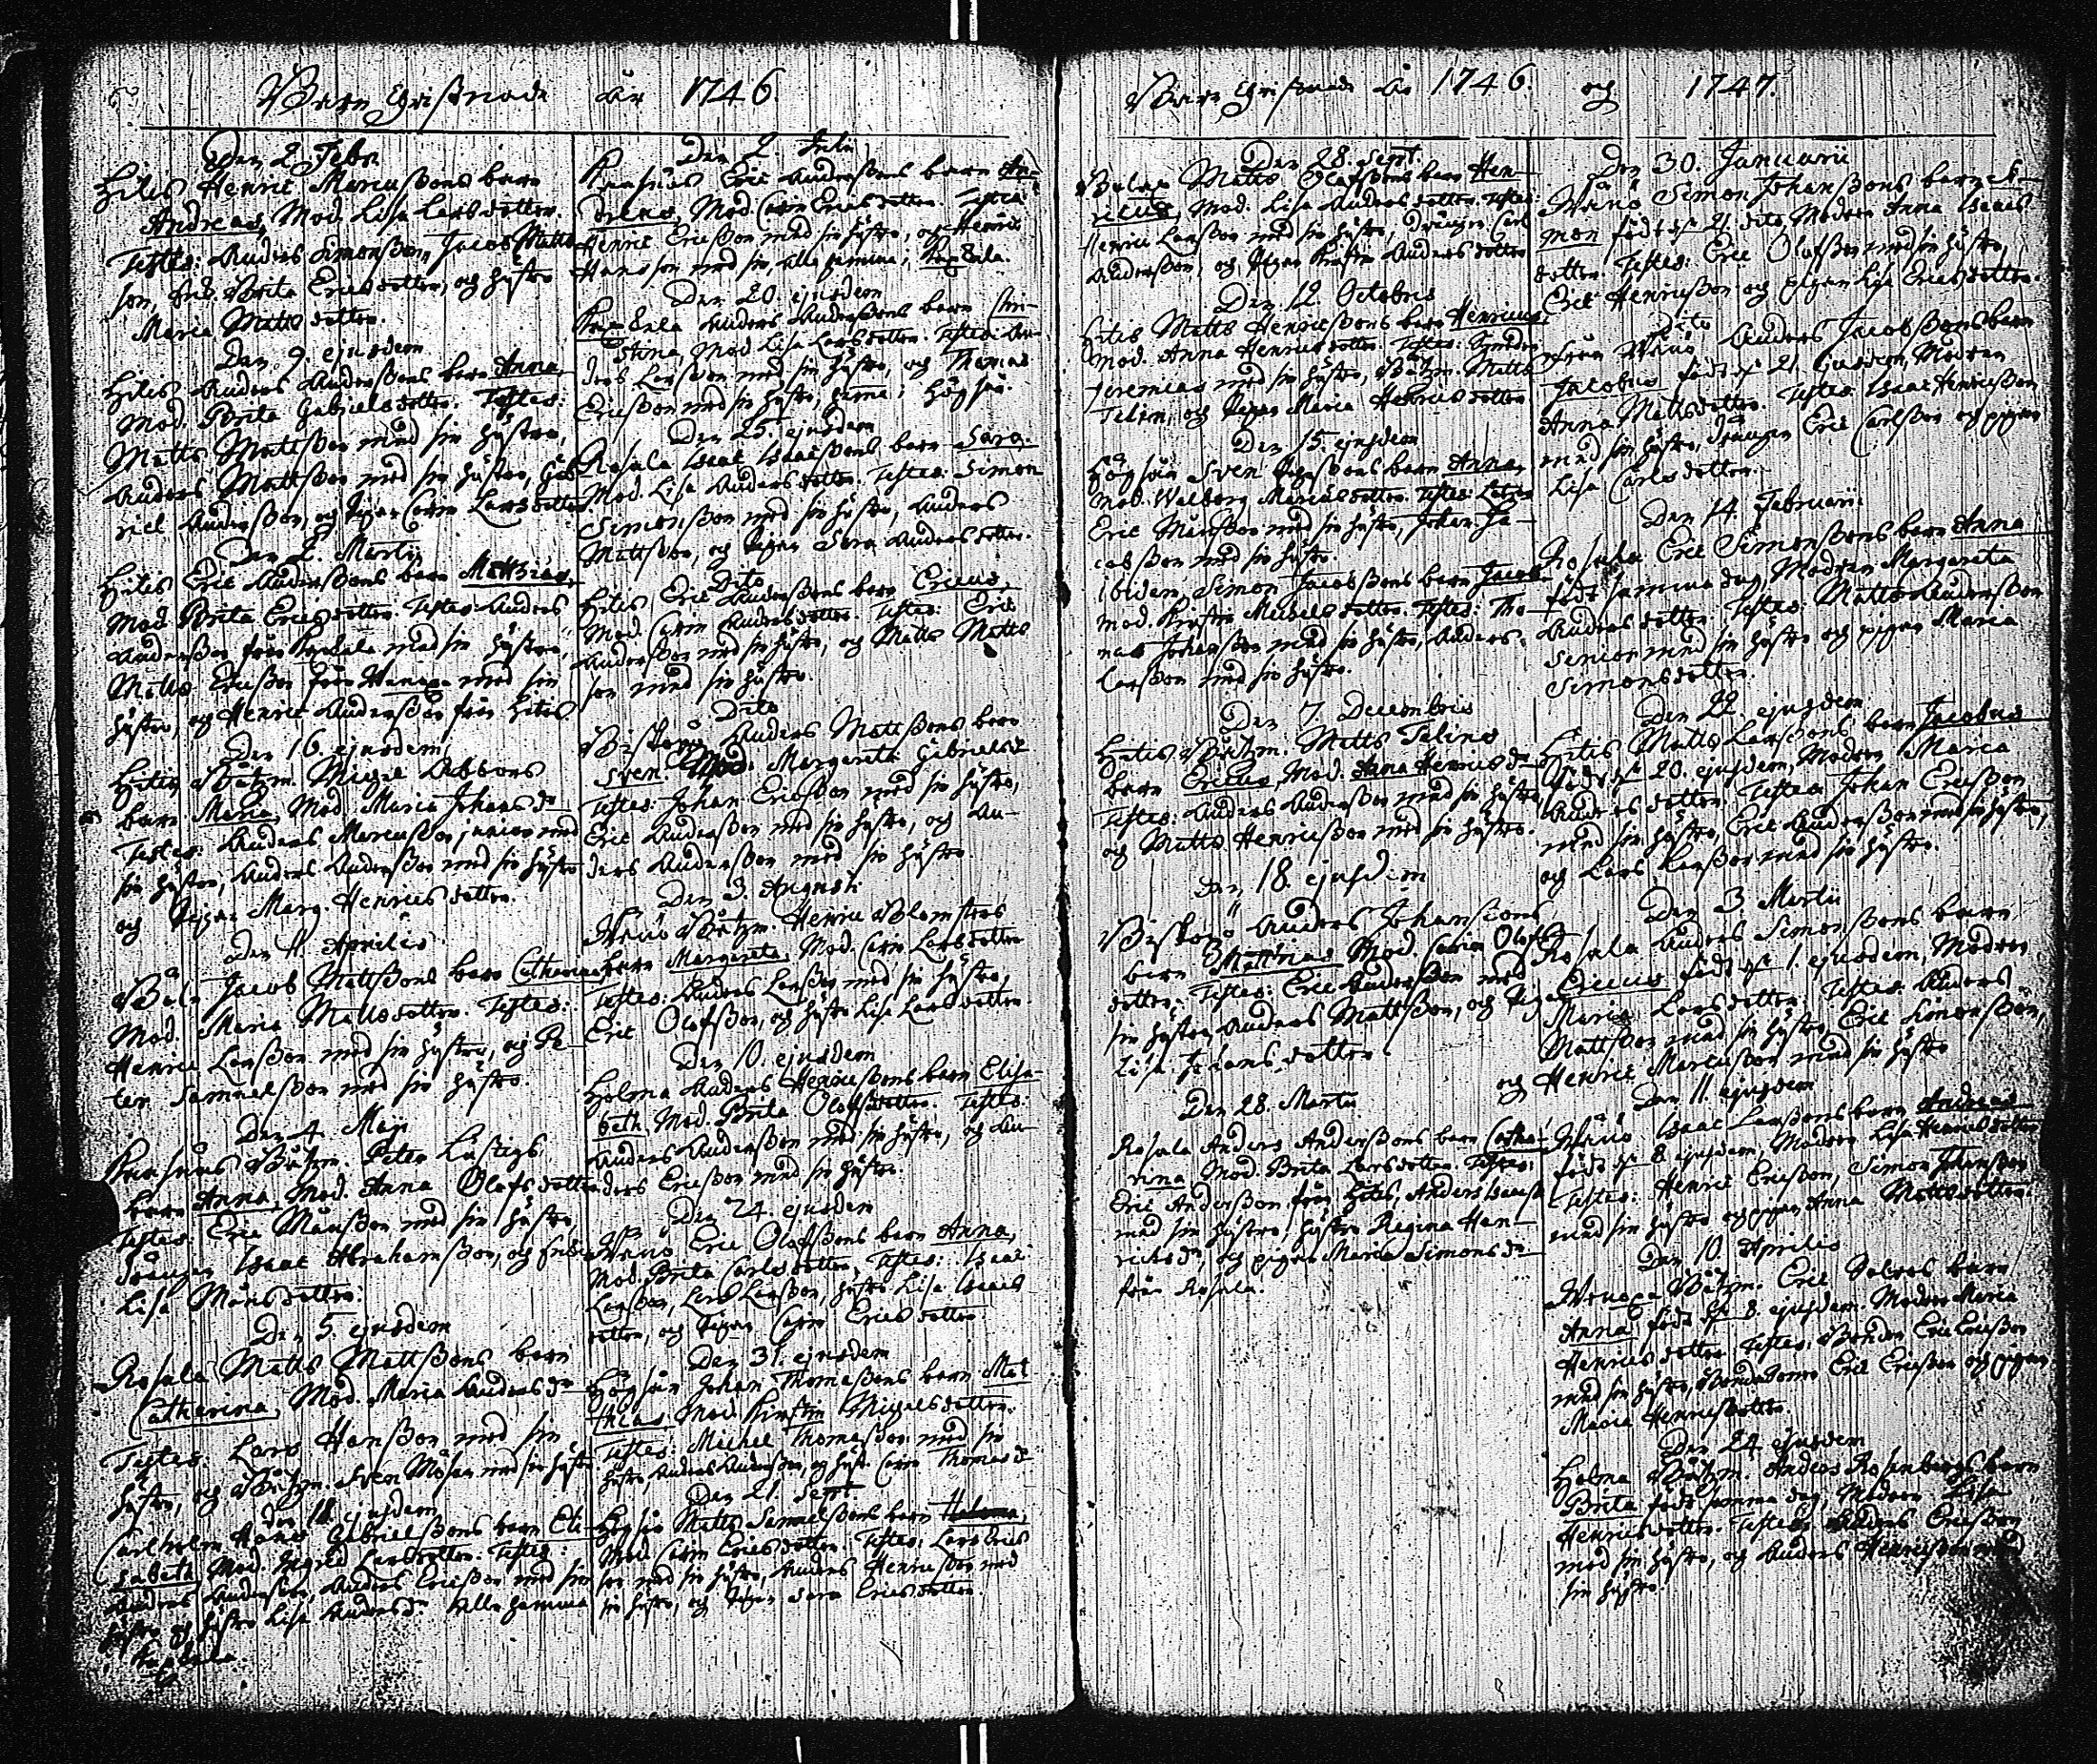 Barn Christnade år 1746.
Den 2 Febr
Hitis Henric Marcussons barn
Andreas, Mod. Lisa Larsdotter.
Testes: Anders Simonsson, Jacob Matts
son, Brita Ericsdotter, och hustro
Maria Mattsdotter.
Den 9. ejusdem
Hitis Anders Anderssons barn Anna,
Mod. Brita Gabrielsdotter. Testes:
Matts Mattsson med sin hustro,
Anders Mattsson med sin hustro, Gab
riel Andersson, og Pigan Carin Larsdotter.
Den 2. Martii
Hitis Eric Anderssons barn Matthias,
Mod. Brita Ericsdotter. Testes Anders
Andersson från med sin hustro,
Matts Ericsson från med sin
hustro, og Henric Andersson från Hitis.
Den 16. ejusdem
Hitis Båtzm. Michel
barn Maria, Mod. Maria Johansdr
Testes: Anders Marcusson junior med
sin hustro, Anders Andersson med sin hustro
og Pigan Marg. Henricsdotter.
Den Aprilis
Jacob Mattssons barn Catharina
Mod. Maria Mattsdotter. Testes:
Henric Larsson med sin hustro, og Pe-
ter Samuelsson med sin hustro.
Den 4. Maji
Båtzm. Peter Lustigs
barn Anna, Mod. Anna Olofsdotter
Testes Eric Månsson med sin hustro,
drängen Isaac Abrahamsson, og
Lisa Månsdotter.
Den 5. ejusdem
Rosala Matts Mattssons barn
Catharina, Mod. Maria Andersdr
Testes Lars Hansson med sin
hustro, og Båtzm. Sven med sin hustro
Den 18. ejusdem
Carlholm Hans Gabrielssons barn Eli-
sabeth Mod. Sigrid Larsdotter. Testes:
Anders Andersson, Anders Ericsson med sin
hustro og hustro Lisa Andersdr Alla hemma

Den 2. Julii
Eric Anderssons barn An-
dreas, Mod. Carin Ericsdotter. Testes
Henric Ericsson med sin hustro, og Henric
Hansson med sin, alla hemma i
Den 20. ejusdem
Anders Anderssons barn Chri-
stina, Mod. Lisa Larsdotter. Testes An-
ders Larsson med sin hustro, og Thomas
Ericsson med sin hustro, hemma i Högsår.
Den 25. ejusdem
Rosala Isaac Isaacssons barn Sara.
Mod. Lisa Andersdotter. Testes Simon
Simonsson med sin hustro, Anders
Mattsson, og Pigan Sara Andersdotter.
Dito
Hitis Eric Anderssons barn Ericus,
Mod. Carin Andersdotter. Testes: Eric
Andersson med sin hustro, og Matts Matts
son med sin hustro.
Dito
Biskopsö Anders Mattssons barn
Sven. Mod. Margareta Gabrielsdr
Testes: Johan Ericsson med sin hustro,
Eric Andersson med sin hustro, og An-
ders Andersson med sin hustro.
Den 3. Augusti
Wänö Båtzm. Henric Blomsters
barn Margareta, Mod. Carin Larsdotter
Testes: Anders Larsson med sin hustro,
Eric Olofsson, og hustro Lisa Larsdotter.
Den 10. ejusdem
Holma Anders Henricssons barn Elisa-
beth, Mod. Brita Olofsdotter. Testes:
Anders Andersson med sin hustro, og An-
ders Ericsson med sin hustro.
Den 24. ejusdem
Wänö Eric Olofssons barn Anna,
Mod. Brita Carlsdotter, Testes: Isaac
Larsson, Lars Larsson, hustro Lisa Isaacs
dotter, og Pigan Carin Ericsdotter.
Den 31. ejusdem
Högsår Johan Thomassons barn Mat-
thias, Mod. Kirstin Michelsdotter.
Testes: Michel Thomasson med sin
hustro, Anders Andersson, og hustr. Carin Thomasdr
Den 21 Sept
Högsår Matts Samuelssons barn
Mod. Carin Ericsdotter. Testes, Lars Erics
son med sin hustro, Anders Henricsson med
sin hustro, og Pigan Sara Ericsdotter.

Barn Christnade år 1746. og 1747.
Den 28. Sept.
Matts Olofssons barn Hen-
ricus, Mod: Lisa Andersdotter. Testes:
Henric Larsson med sin hustro, Drängen Carl
Andersson, og Pigan Kirstin Andersdotter
Den 12. Octobris
Hitis Matts Henricssons barn Henricus,
Mod. Anna Henricsdotter. Testes:
Jeremias med sin hustro, Båtzm. Matts
Telin, og Pigan Maria Henricsdotter
Den 15. ejusdem
Högsår Sven barn Anna,
Mod. Walborg Mariædotter. Testes:
Eric Månsson med sin hustro, Johan Ja-
cobsson med sin hustro.
Ibidem Simon Jacobssons barn Jacob
Mod. Kirstin Michelsdotter. Testes: Tho-
mas Johansson med sin hustro, Anders
Larsson med sin hustro.
Den 7. Decembris
Hitis Båtzm. Matts Telins
barn Ericus, Mod. Anna Henricsdr
Testes: Anders Andersson med sin hustro,
og Matts Henricsson med sin hustro.
Den 18. ejusdem
Biskopsö Anders Johanssons
barn Matthias Mod. Carin Olofs
dotter. Testes: Eric Andersson med
sin hustro, Anders Mattsson, og Pigan
Lisa Johansdotter.
Den 28. Martii
Rosala Anders Anderssons barn Catha-
rina Mod. Brita Larsdotter. Testes:
Eric Andersson från Hitis, Anders Isacss
med sin hustro, hustro Regina Hen-
ricsdr, og pigan Maria Simonsdr
från Rosala.

Den 30. Januarii
Wänö Simon Johanssons barn Si-
mon född d. 21 dito, Modren Anna Isaacs
dotter. Testes: Eric Olofsson med sin hustro,
Eric Henricsson og pigan Lisa Ericsdotter.
Dito
från Wänö Anders Jacobssons barn
Jacobus född d. 21 ejusdem, Modren
Anna Mattsdotter. Testes Isaac Henricsson
med sin hustro, drängen Eric Carlsson og pigan
Lisa Carlsdotter.
Den 14. Februarii.
Rosala Eric Simonssons barn Anna
född samma dag, Modren Margareta
Andersdotter. Testes: Matts Andersson
Senior med sin hustro og pigan Maria
Simonsdotter.
Den 22. ejusdem
Hitis Matts Larssons barn Jacobus
född d. 20. ejusdem, Modren Maria
Andersdotter. Testes Johan Ericsson
med sin hustro, Eric Andersson med sin hustro,
og Lars Larsson med sin hustro.
Den 3 Martii
Rosala Anders Simonssons barn
Ericus född d. 1. ejusdem, Modren
Maria Larsdotter. Testes: Anders
Mattsson med sin hustro, Eric Simonsson,
og Henric Marcusson med sin hustro
Den 11. ejusdem
Wänö Isaac Larssons barn Andreas
född d. 8. ejusdem, Modren Lisa Henricsdotter
Testes: Henric Ericsson, Simon Johansson
med sin hustro og pigan Anna Mattsdotter.
Den 10. Aprilis
Båtzm. Eric barn
Anna född d. 8. ejusdem. Modren Maria
Henricsdotter Testes, Bonden Eric Ericsson
med sin hustro, Bondesonen Eric Ericsson og pigan
Maria Henricsdotter.
Den 24 ejusdem
Holma Båtzm. Anders Rosenbergs barn
Brita född samma dag, Modren Lisa
Henricsdotter. Testes Anders Ericsson
med sin hustro, og Anders Henricsson med
sin hustro.